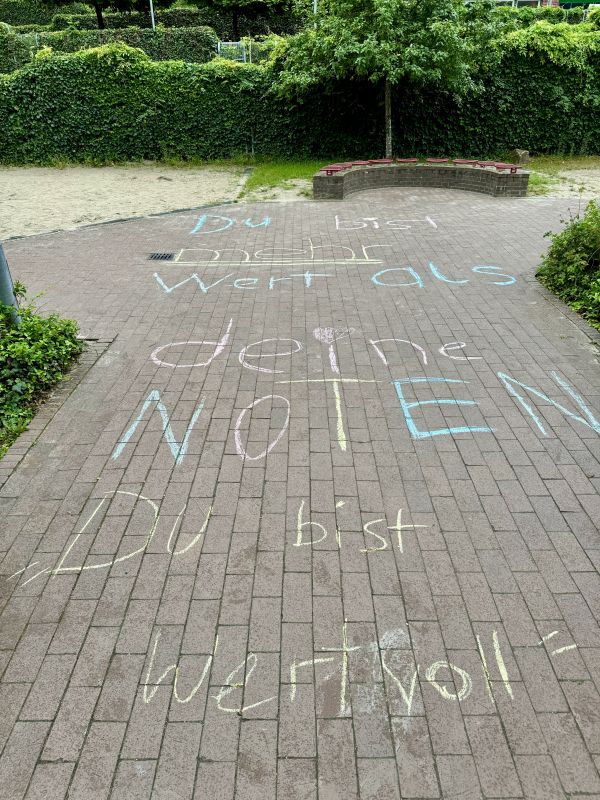 Du bist
mehr
Wert als
deine
NOTEN
„Du bist
Wertvoll"